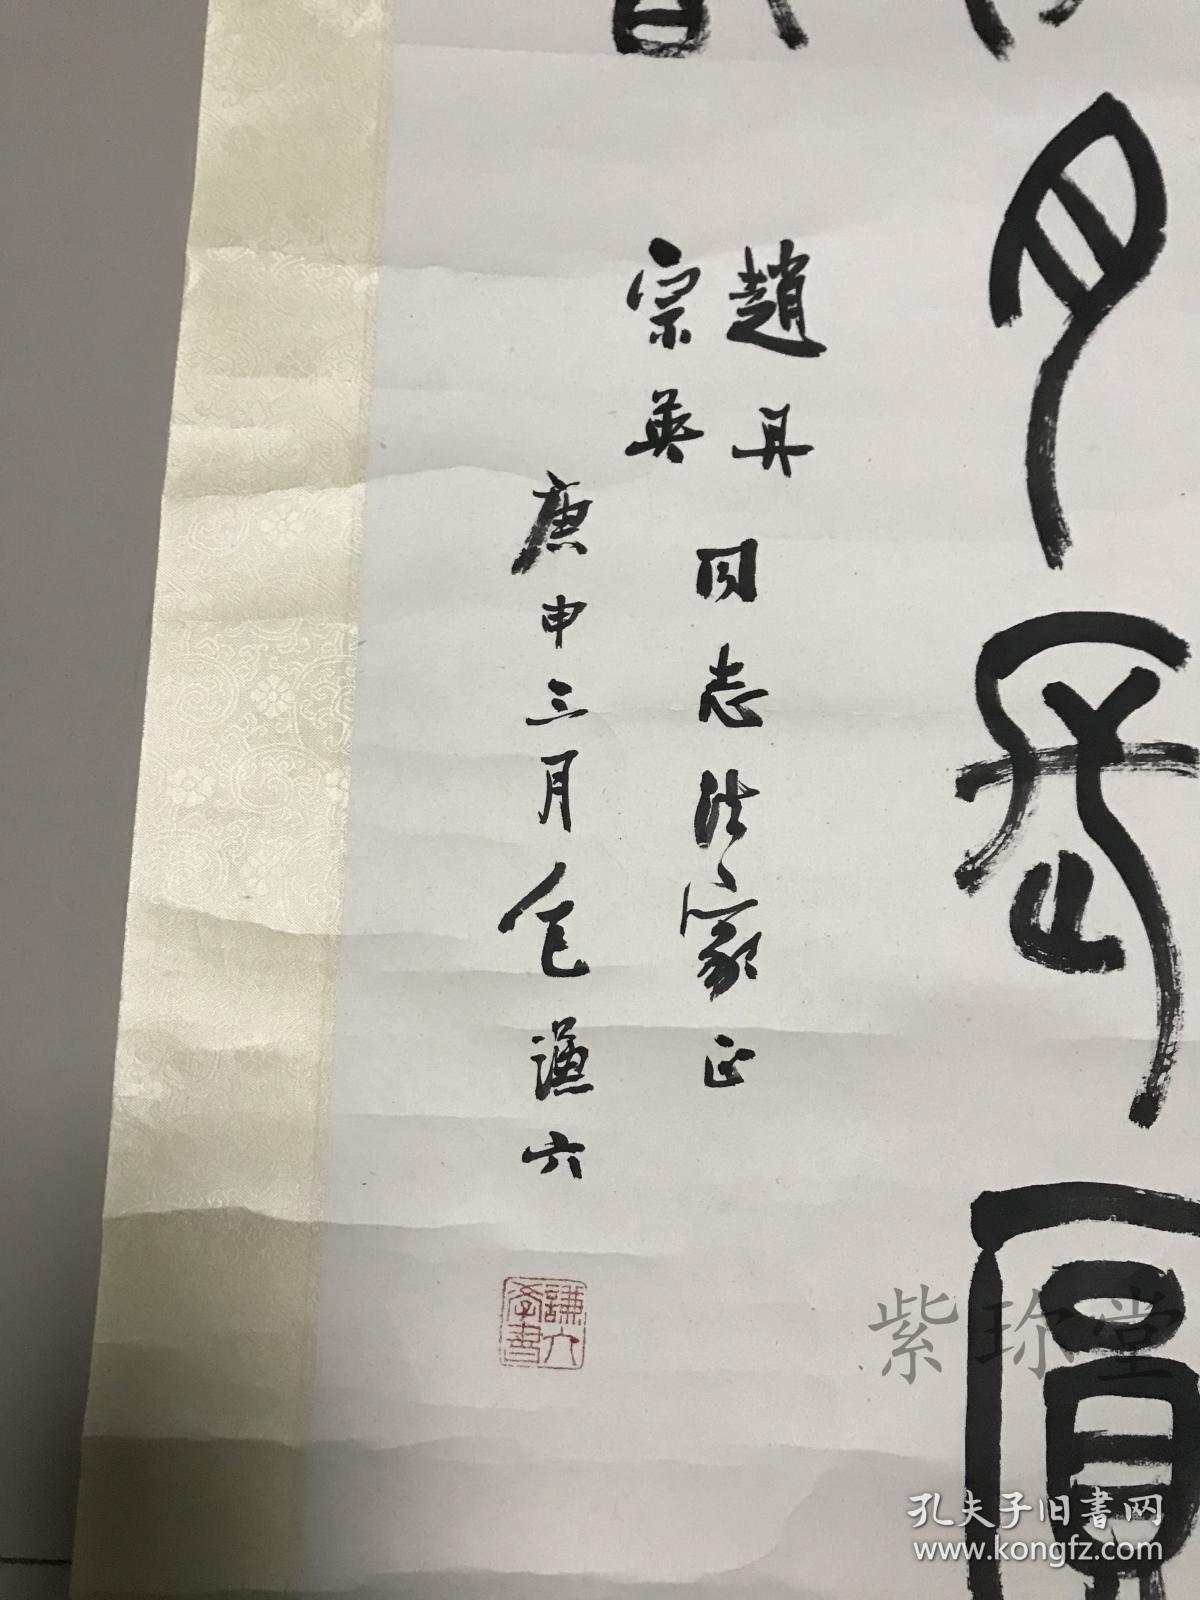 月長圓
趙丹
宗英
同志法家正
庚申三月包謙六
謙六
學書
紫珍堂
孔夫子旧書网
www.kongfz.com